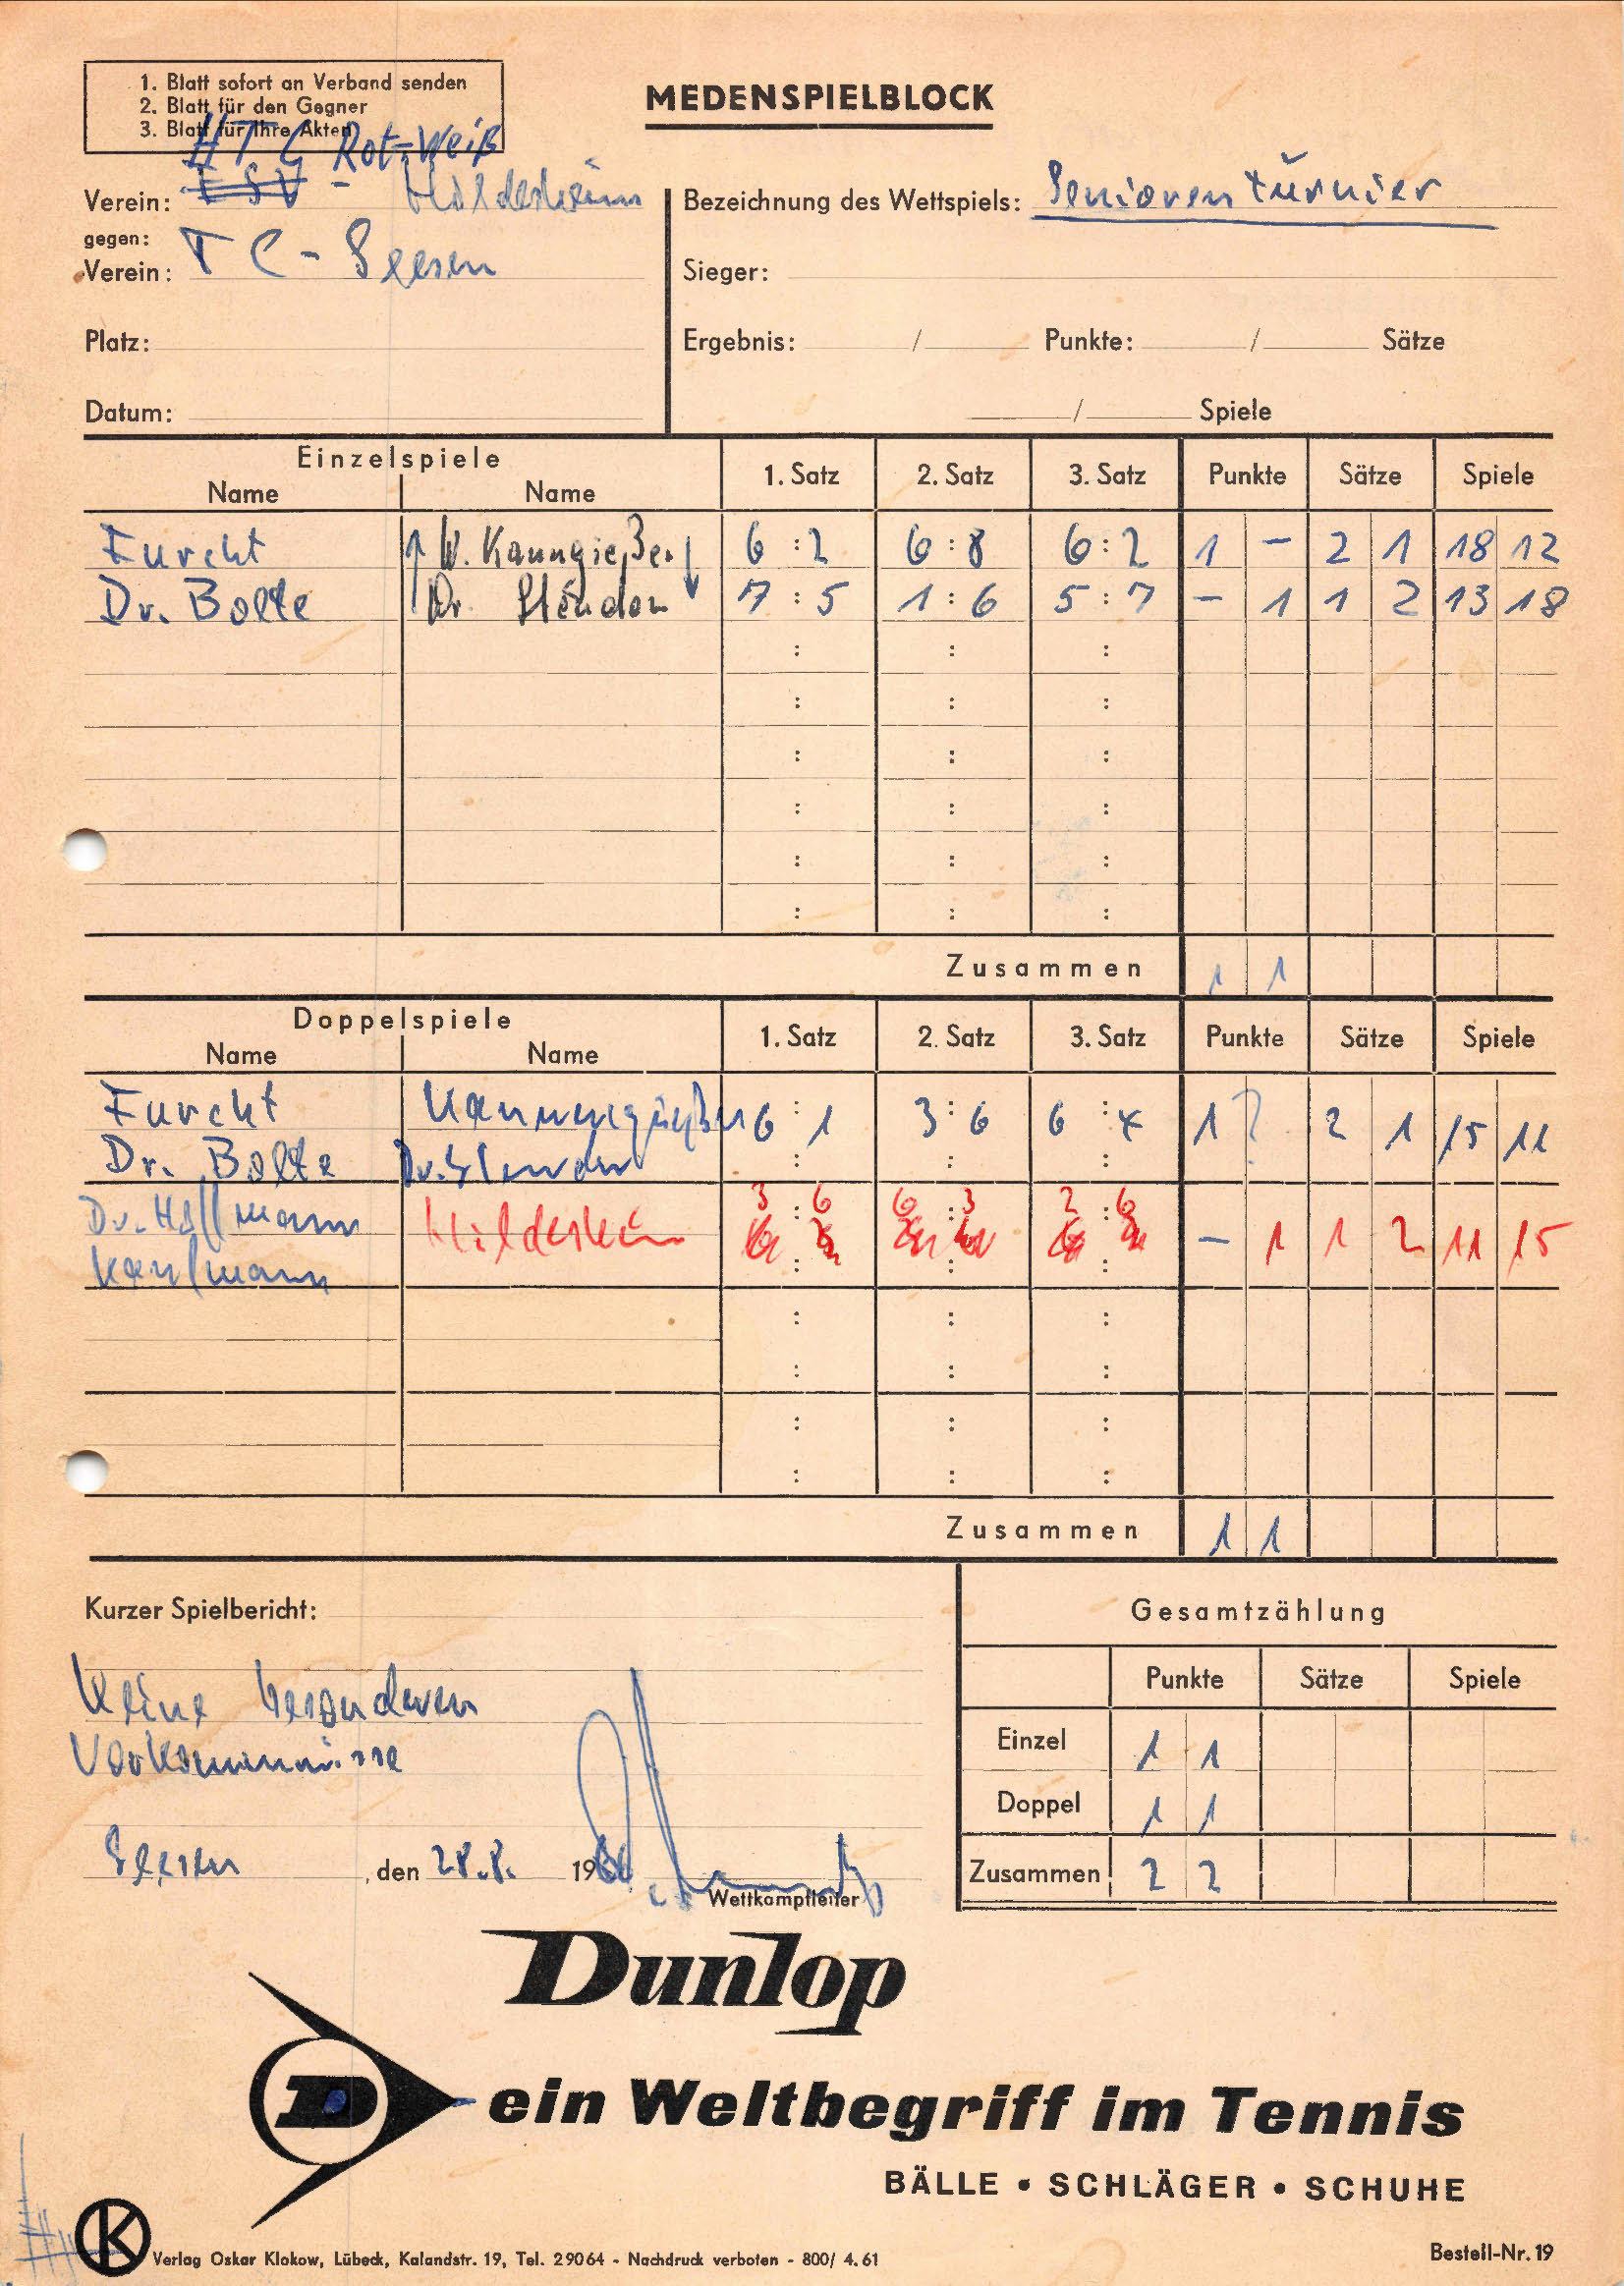 1. Blatt sofort an Verband senden
2. Blatt für den Gegner
3. Blatt für Ihre Akten
MEDENSPIELBLOCK
HTC Rot-Weiß
Verein: ESV - Hildesheim
Bezeichnung des Wettspiels: Seniorenturnier
gegen:
Verein: TC - Seesen
Sieger:
Platz:
Ergebnis: / Punkte: / Sätze
Datum:
/ Spiele
Einzelspiele
Name Name 1. Satz 2. Satz 3. Satz Punkte Sätze Spiele
Furcht W. Kanngießer 6 : 2 6 : 8 6 : 2 1 - 2 1 18 12
Dr. Bolte Dr. 7 : 5 1 : 6 5 : 7 - 1 1 2 13 18
: : :
: : :
: : :
: : :
: : :
: : :
Zusammen 1 1
Doppelspiele
Name Name 1. Satz 2. Satz 3. Satz Punkte Sätze Spiele
Furcht Kannengießer 6 : 1 3 : 6 6 : 4 1 ? 2 1 15 11
Dr. Bolte Dr. : : :
Dr. Hoffmann Hildesheim 3 : 6 6 : 3 2 : 6 - 1 1 2 11 15
Kaufmann : : :
: : :
: : :
: : :
: : :
Zusammen 1 1
Kurzer Spielbericht:
Keine besonderen
Vorkommnisse
Seesen, den 28.8. 19
Wettkampfleiter
Gesamtzählung
Punkte Sätze Spiele
Einzel 1 1
Doppel 1 1
Zusammen 2 2
Dunlop
D
ein Weltbegriff im Tennis
BÄLLE • SCHLÄGER • SCHUHE
K
Verlag Oskar Klokow, Lübeck, Kalandstr. 19, Tel. 29064 - Nachdruck verboten - 800/ 4.61
Bestell-Nr. 19